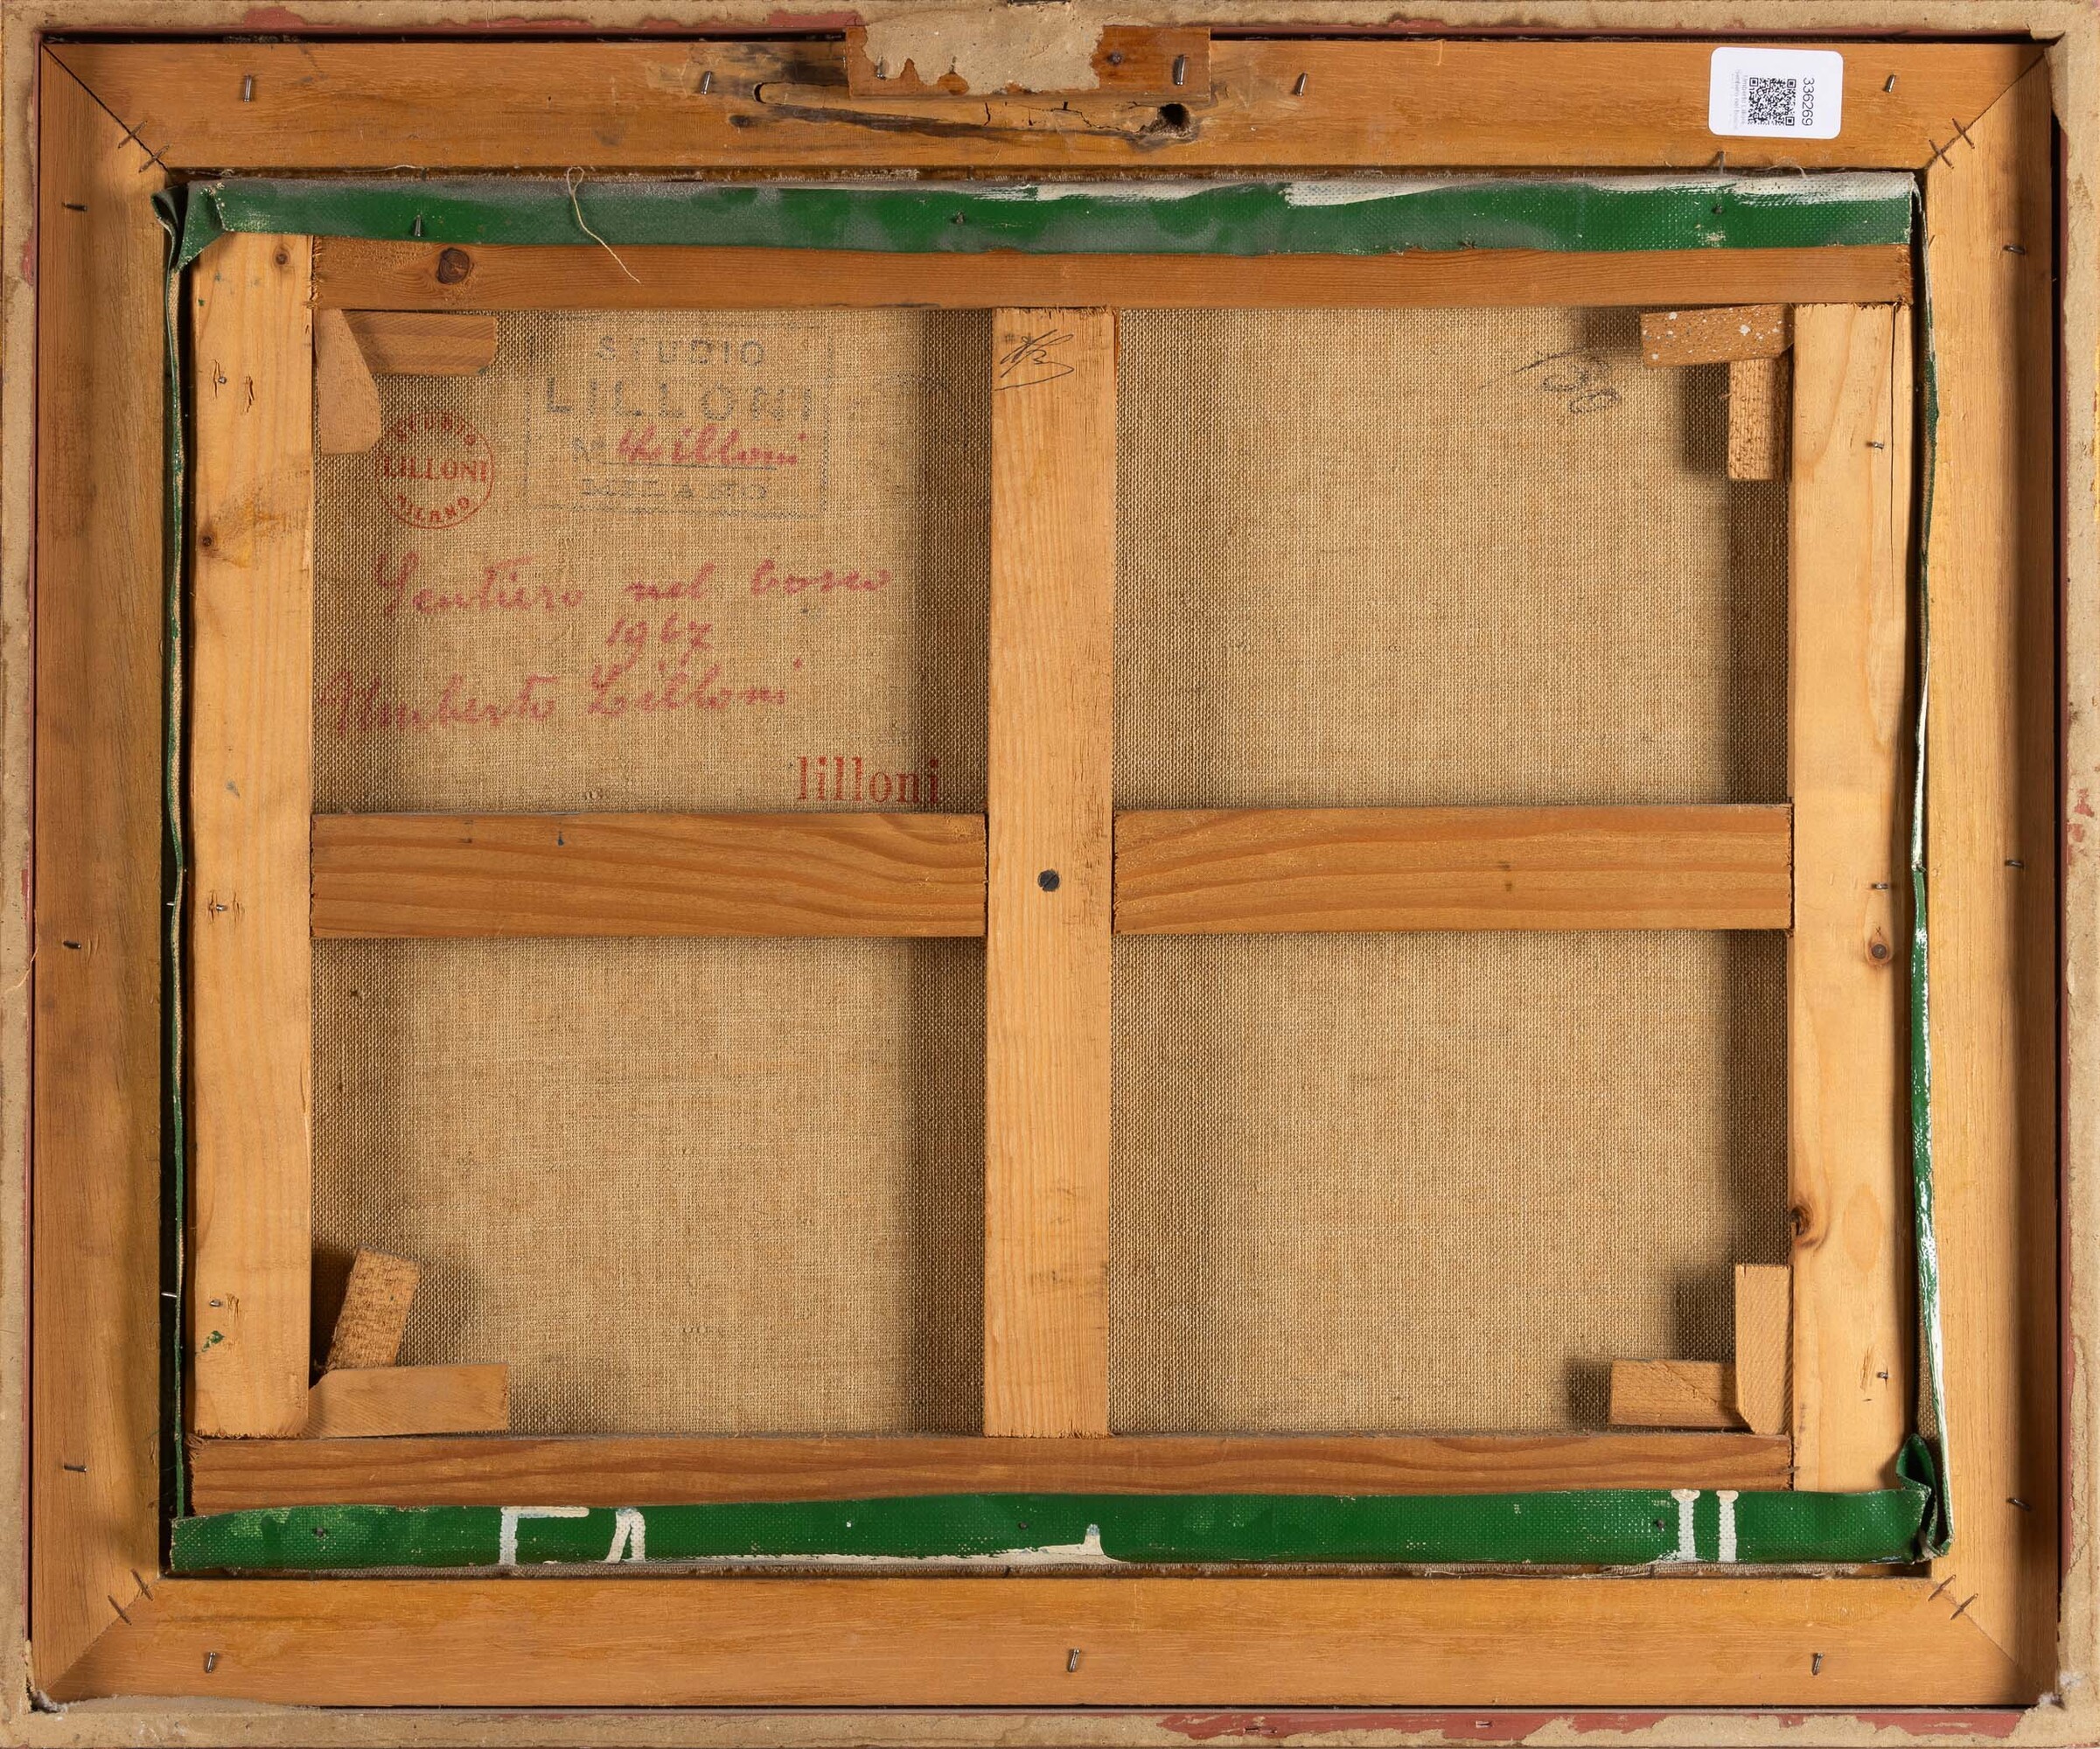 336269
STUDIO
LILLONI
N° U. Lilloni
MILANO
STUDIO
LILLONI
MILANO
Sentiero nel bosco
1967
Umberto Lilloni
lilloni